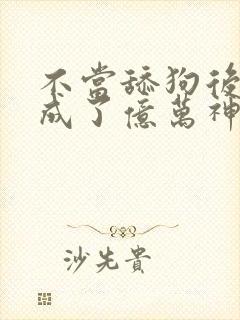 不當舔狗後
成了億萬神
沙先貴